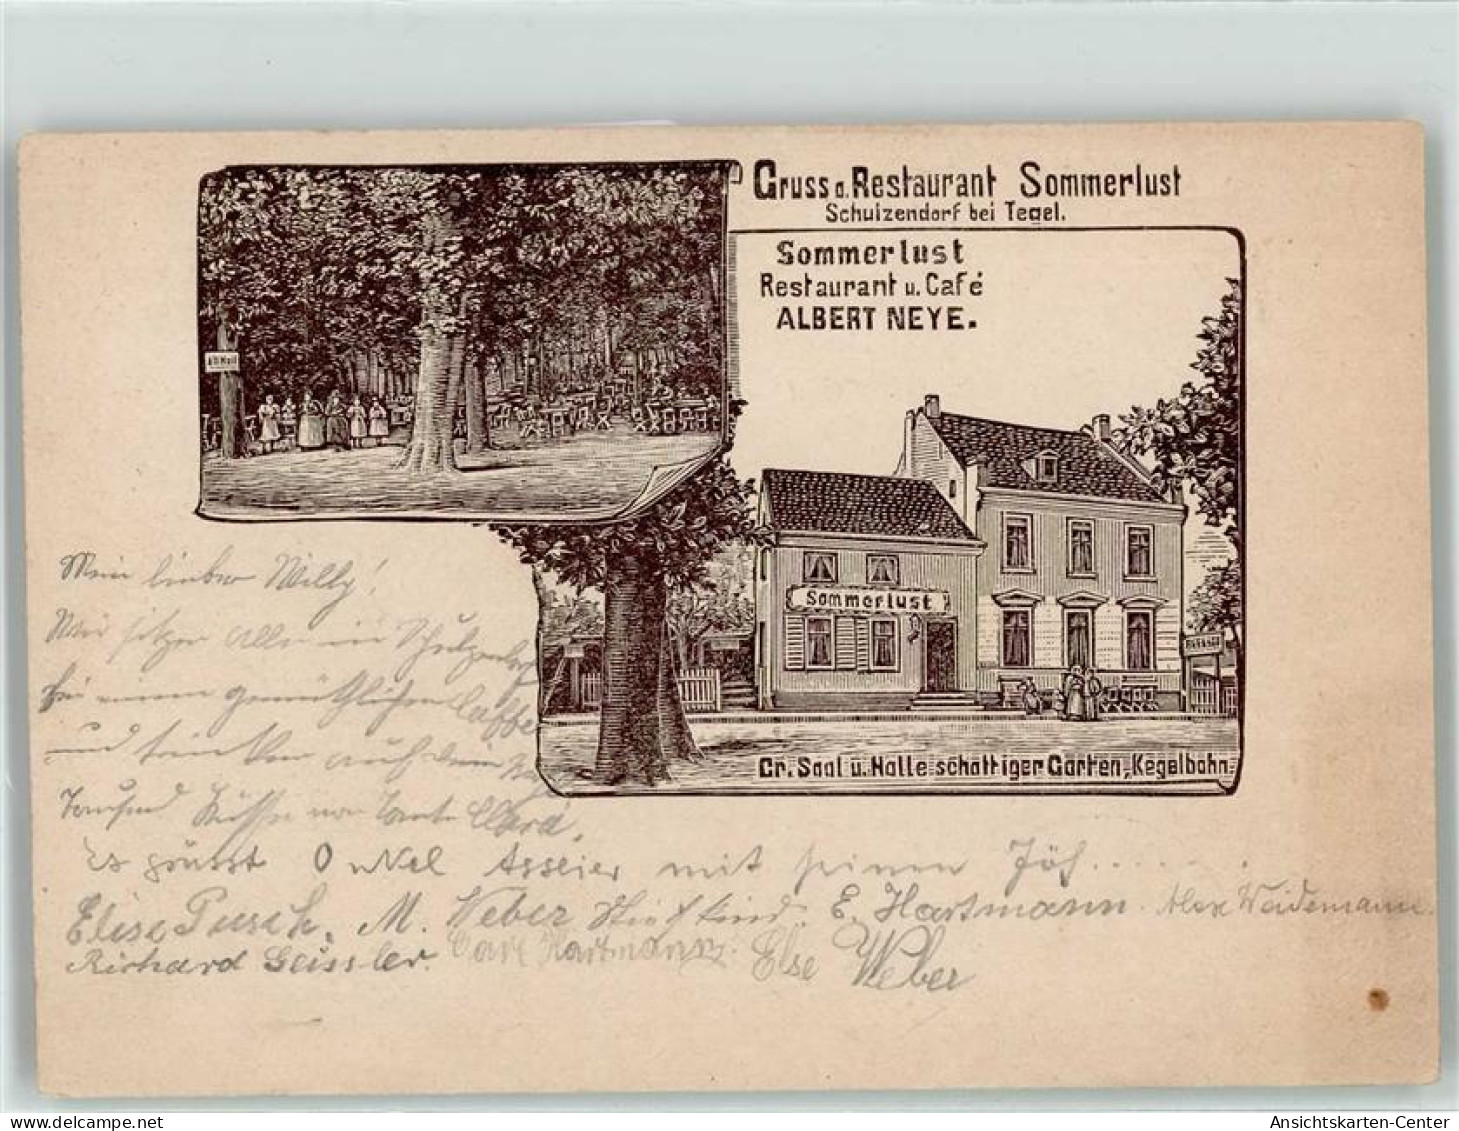 Gruss a. Restaurant Sommerlust
Schulzendorf bei Tegel.
Sommerlust
Restaurant u. Café
ALBERT NEYE.
Sommerlust
Gr. Saal u. Halle schattiger Garten, Kegelbahn
Mein lieber Willy!
Wir sitzen alle in Schulzendorf
bei einem gemütlichen Caffee
und trinken auch dein
Tausend Küsse von Tante Clara.
Es grüsst Onkel Asseier mit seinen
Elise Pusch. M. Weber E. Hartmann. Alex Weidemann.
Richard Geissler. Carl Hartmann. Else Weber
delcampe.net
Ansichtskarten-Center